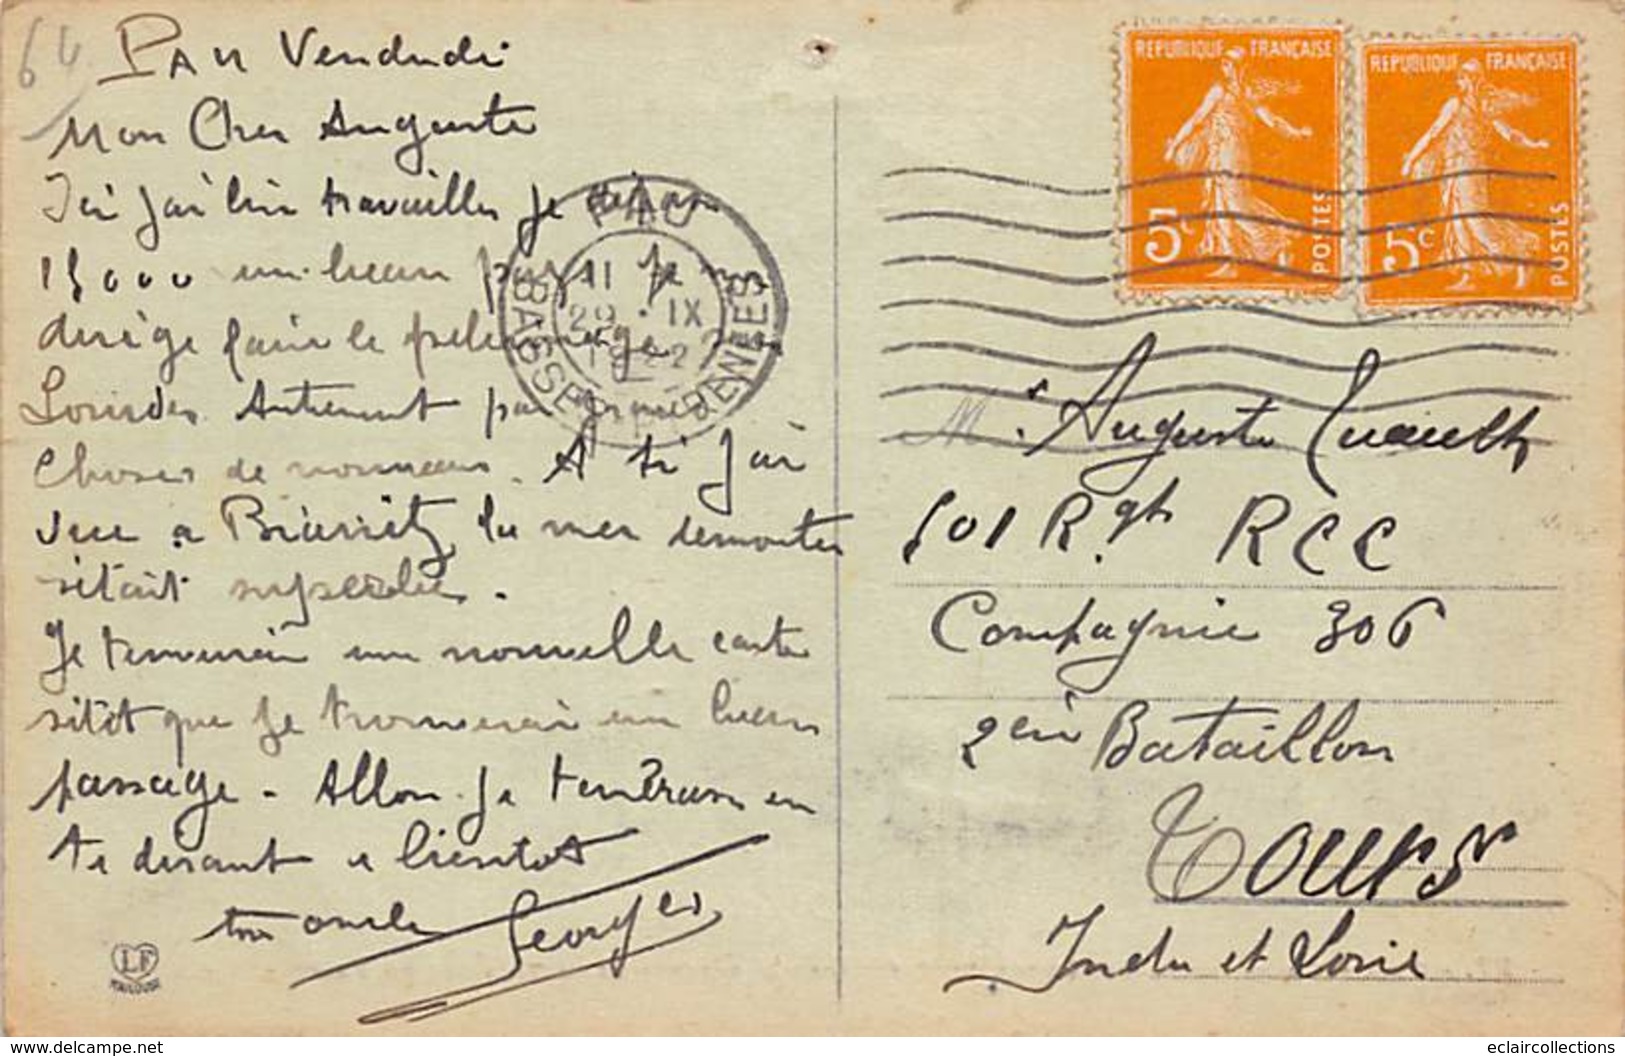 64
Pau Vendredi
Mon Cher Auguste
Ici j'ai bien travailler je
15000 un beau pays Je
dirège faire le pelerinage
Lourdes Autrement pas
choses de nouveau. A si j'ai
vue a Biarritz la mer demontée
s'etait superbe.
Je t'enverrai une nouvelle carte
sitôt que je trouverai un beau
passage - Allon je t'embrasse en
te disant a bientot
ton oncle Georges
LF
TOULOUSE
PAU
BASSES PYRENEES
11
29 IX
1922
REPUBLIQUE FRANÇAISE
5c
POSTES
REPUBLIQUE FRANÇAISE
5c
POSTES
Mr Auguste
501 Rgt RCC
Compagnie 306
2em Bataillon
TOURS
Indre et Loire
www.delcampe.net
eclaircollections